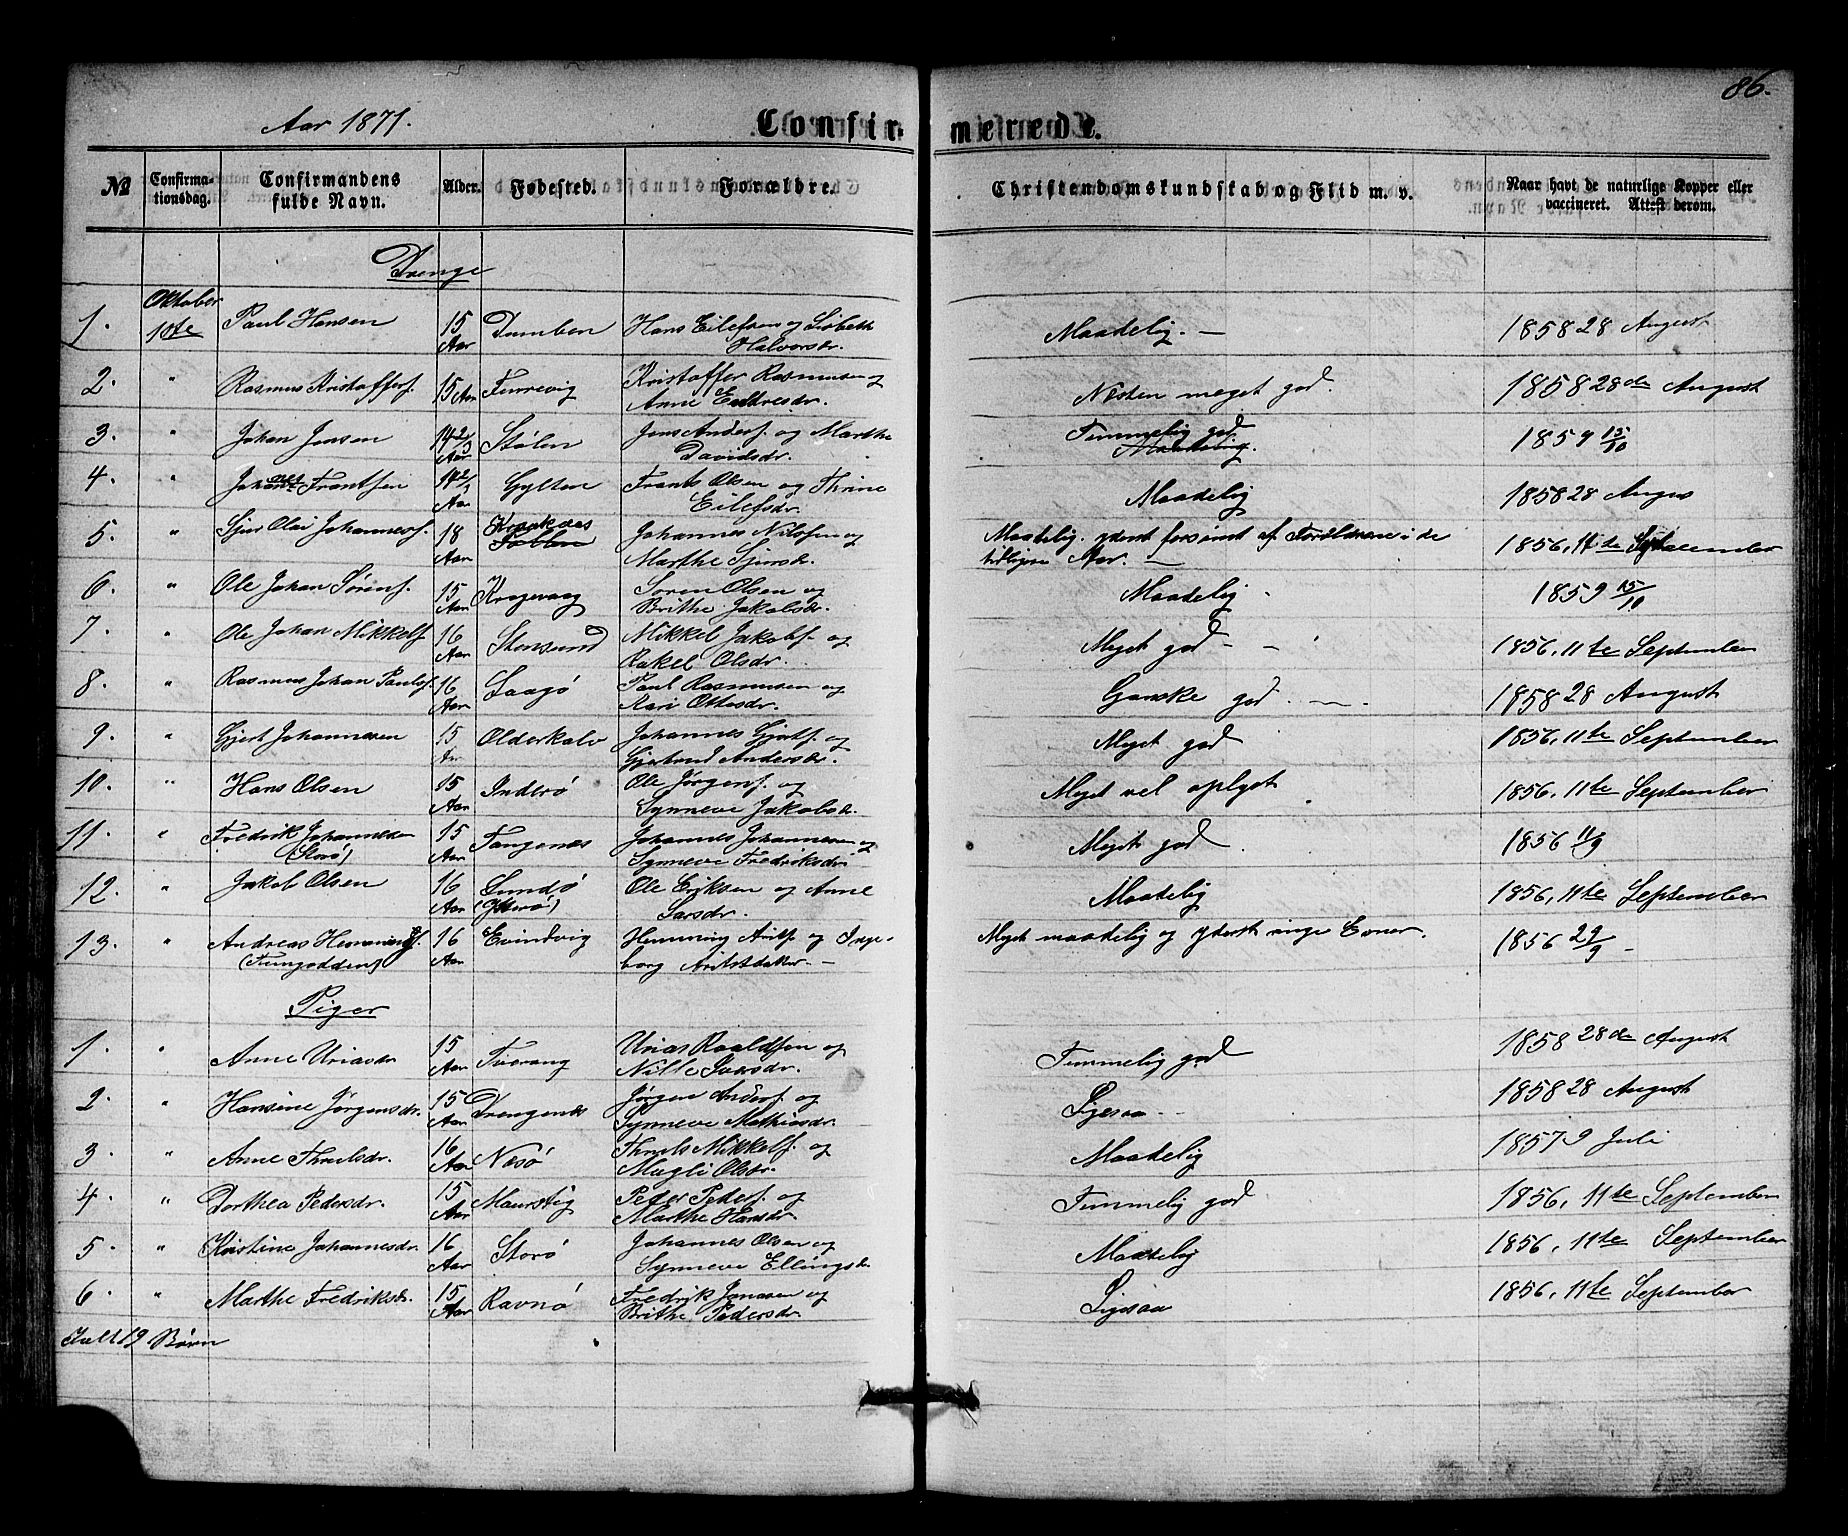 86.
Aar 1871.
Confirmerede.
No Confirmationsdag. Confirmandens fulde Navn. Alder. Fødested. Forældre. Christendomskundskab og Flid m. v. Naar havt de naturlige Kopper eller vaccineret. Attest derom.
Drenge
1. Oktober 1ste Paul Hansen 15 Aar Dumben Hans Eilefsen og Lisbeth Halvorsdr. Maadelig. — 1858 28 August
2. " Rasmus Kristoffersf. 15 Aar Tenrevig Kristoffer Rasmusen og Anne Endresdr. Nesten meget god. 1858 28de August
3. " Johan Jensen 14 2/3 Aar Stølen Jens Andersf. og Marthe Davidsdr. Temmelig god Maadelig. 1859 15/10
4. " Johannes Frantsen 14 2/3 Aar Gylten Frants Olsen og Thrine Eilefsdr. Maadelig 1858 28 Augus
5. " Sjur Olai Johannesf. 18 Aar Krakenes Johannes Nilssen og Marthe Sjursdr. Maadelig. yderst forsømt af Foreldrene i de tidligere Aar. — 1856, 11te September
6. " Ole Johan Sørensf. 15 Aar Krogevaag Søren Olsen og Brithe Jakobsdr. Maadelig 1859 15/10
7. " Ole Johan Mikkelsf. 16 Aar Stensund Mikkel Jakobsf. og Rakel Olsdr. Meget god - - 1856, 11te September
8. " Rasmus Johan Paulsf. 16 Aar Laagø Paul Rasmusen og Kari Ottesdr. Ganske god. 1858 28 August
9. " Gjert Johannesen 15 Aar Olderkalv Johannes Gjertsf. og Gjertrud Andersdr. Meget god 1856, 11te September
10. " Hans Olsen 15 Aar Inderø Ole Jørgensf. og Synneve Jakobsdr. Meget vel oplyst 1856, 11te September
11. " Fredrik Johannesen (Storø) 15 Aar Tangenes Johannes Johannesen og Synneve Fredriksdr. Meget god 1856 11/9
12. " Jakob Olsen 16 Aar Sandø (Ytterø) Ole Eriksen og Anne Larsdr. Maadelig 1856, 11te September
13. " Andreas Hemmingsf. (Tungodden) 16 Aar Evindvig Hemming Arilsf. og Ingeborg Aritsdatter — Meget maadelig og yderst ringe Evner. 1856 29/9 —
Piger
1. " Anne Uriasdr 15 Aar Tverang Urias Roaldsen og Nille Ivarsdr. Temmelig god 1858 28de August
2. " Hansine Jørgensdr. 15 Aar Drengenes Jørgen Andersf. og Synneve Mathiasdr. Ligesaa — 1858 28 August
3. " Anne Thrulsdr. 16 Aar Nesø Thruls Mikkelsf. og Magli Olsdr. Maadelig 1857 9 Juli
4. " Dorthea Pedersdr. 15 Aar Maurstig Peder Pedersf. og Marthe Hansdr. Temmelig god 1856, 11te September
5. " Kristine Johannesdr. 16 Aar Storø Johannes Olsen og Synneve Ellingsdr Maadelig 1856, 11te September
6. " Marthe Fredriksdr. 15 Aar Ravnø Fredrik Jonassen og Brithe Pedersdr. Ligesaa 1856, 11te September
Ialt 19 Børn